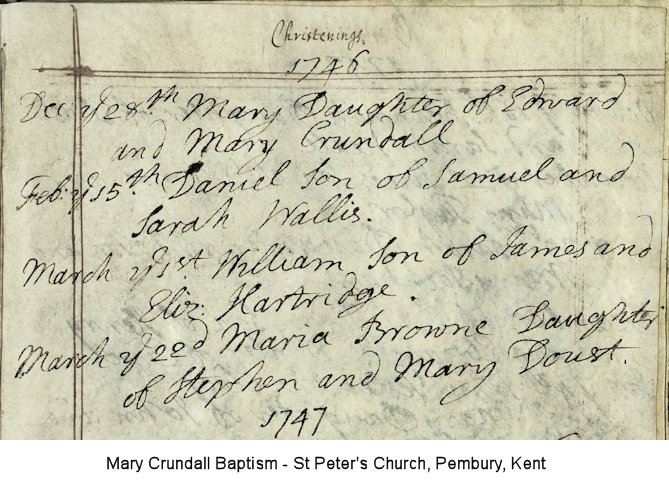 Christenings.
1746
Dec: yͤ 28.th Mary Daughter of Edward
and Mary Crundall
Feb: yͤ 15.th Daniel Son of Samuel and
Sarah Wallis.
March yͤ 1st William Son of James and
Eliz: Hartridge.
March yͤ 22d Maria Browne Daughter
of Stephen and Mary Doust.
1747
Mary Crundall Baptism - St Peter's Church, Pembury, Kent